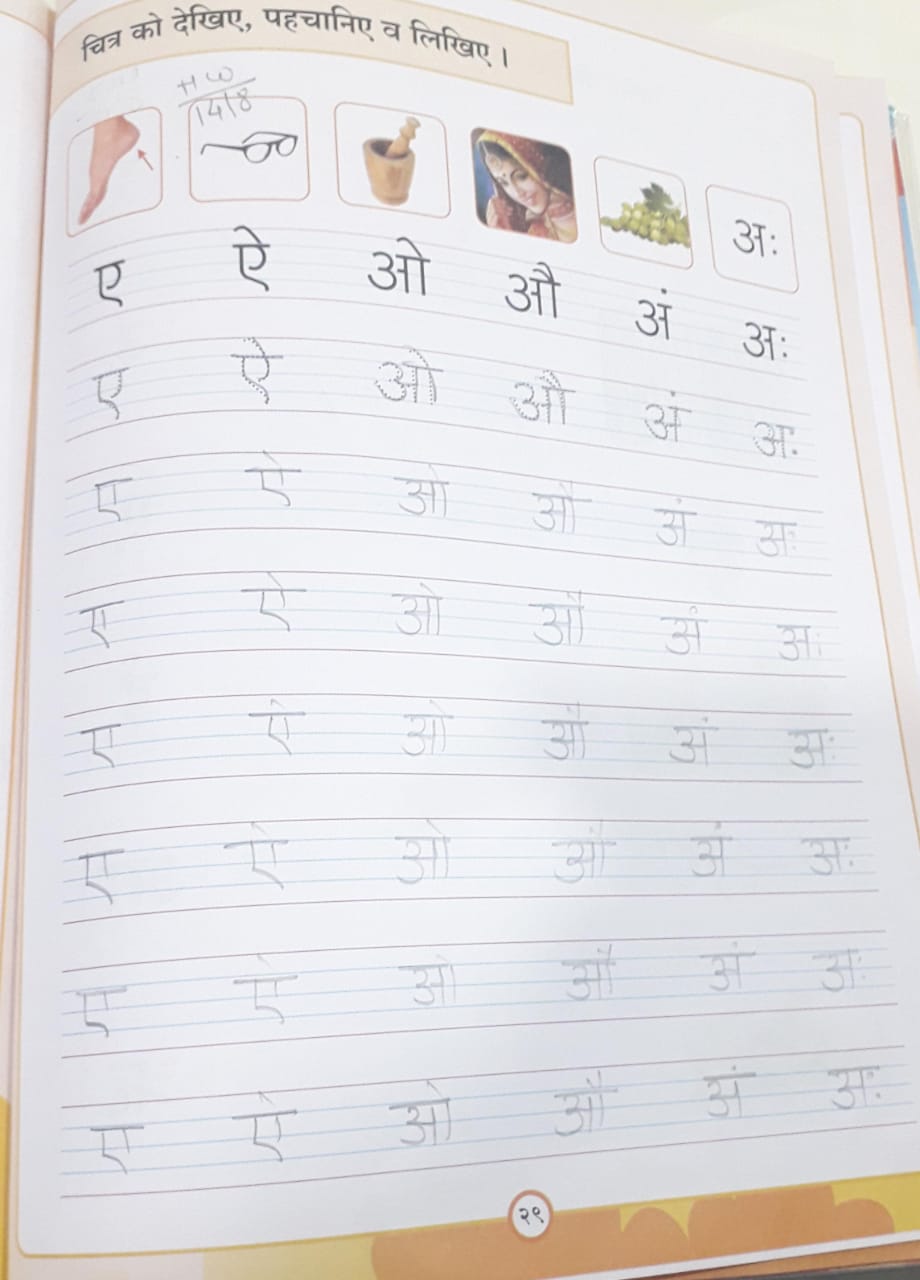 चित्र को देखिए, पहचानिए व लिखिए ।
HW
14/8
अः
ए ऐ ओ औ अं अः
ए ऐ ओ औ अं अः
ए ऐ ओ औ अं अः
ए ऐ ओ औ अं अः
ए ऐ ओ औ अं अः
ए ऐ ओ औ अं अः
ए ऐ ओ औ अं अः
ए ऐ ओ औ अं अः
२९